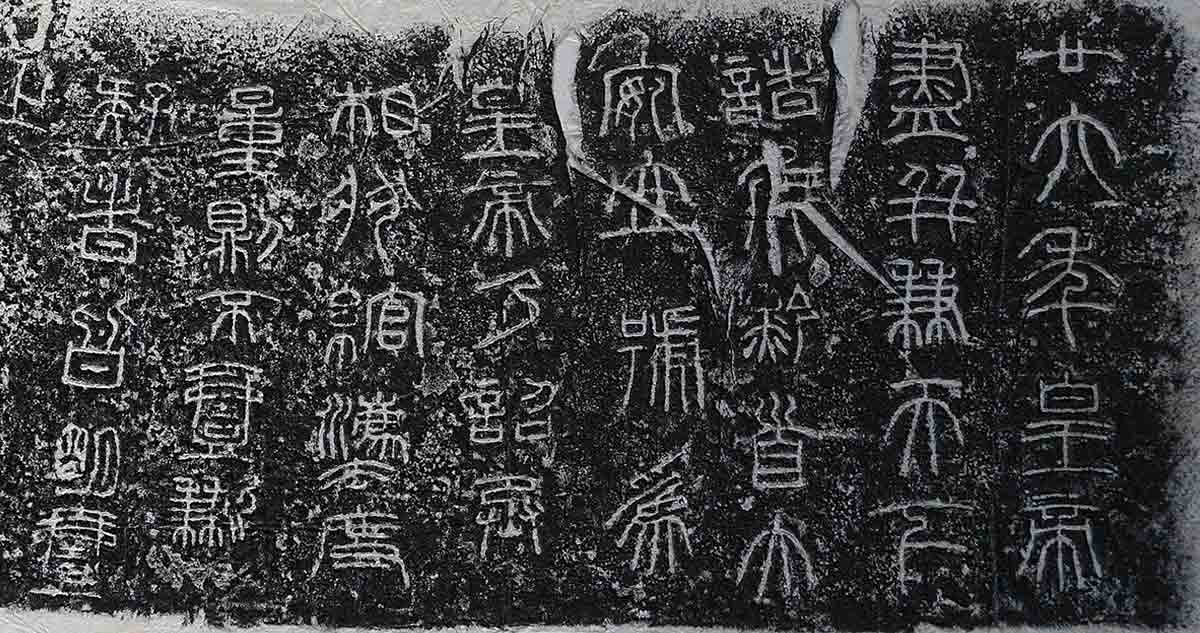 廿六年皇帝
盡并兼天下
諸矦黔首大
安立號為
皇帝乃詔丞
相狀綰灋度
量則不壹歉
疑者皆明壹